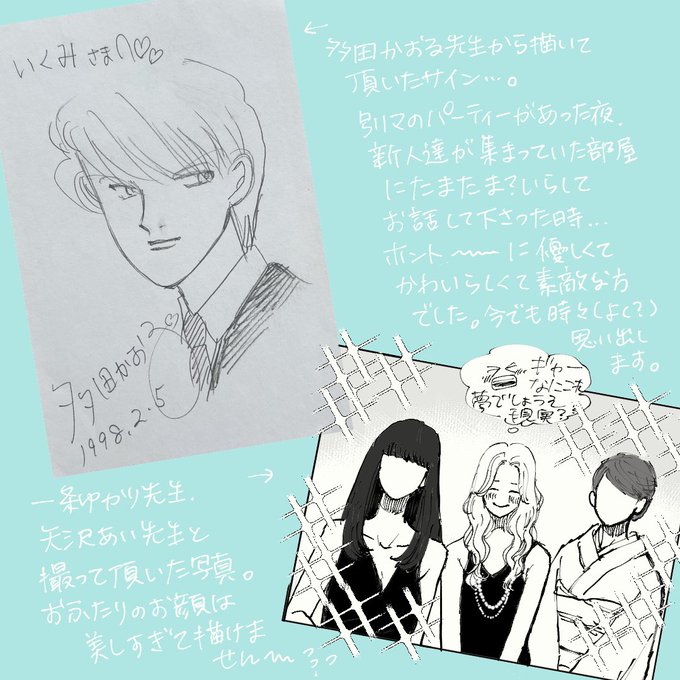 いくみさまへ♡♡
多田かおる♡
1998.2.5
←
多田かおる先生から描いて
頂いたサイン…。
別マのパーティーがあった夜、
新人達が集まっていた部屋
にたまたま?いらして
お話して下さった時…
ホント〜〜に優しくて
かわいらしくて素敵な方
でした。今でも時々(よく?)
思い出し
ます。
ギャー
なにこれ
夢でしょうか
現実?
→
一条ゆかり先生、
矢沢あい先生と
撮って頂いた写真。
おふたりのお顔は
美しすぎて描けま
せん〜